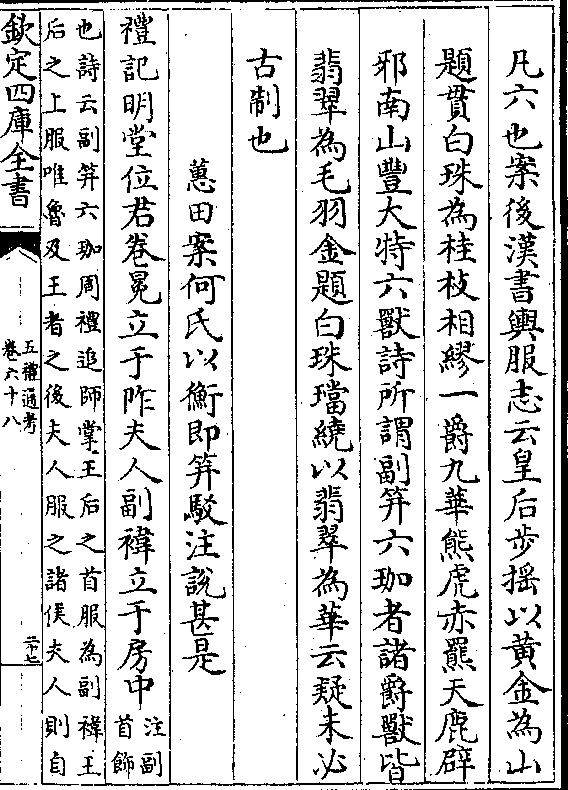 凡六也案後漢書輿服志云皇后步揺以黄金為山
題貫白珠為桂枝相繆一爵九華熊虎赤羆天鹿辟
邪南山豐大特六獸詩所謂副笄六珈者諸爵獸皆
翡翠為毛羽金題白珠璫繞以翡翠為華云疑未必
古制也
蕙田案何氏以衡即笄駁注說甚是
禮記明堂位君卷冕立于阼夫人副褘立于房中
注副
首飾
也詩云副笄六珈周禮追師掌王后之首服為副褘王
后之上服唯魯及王者之後夫人服之諸侯夫人則自
欽定四庫全書
五禮通考
卷六十八
二十七